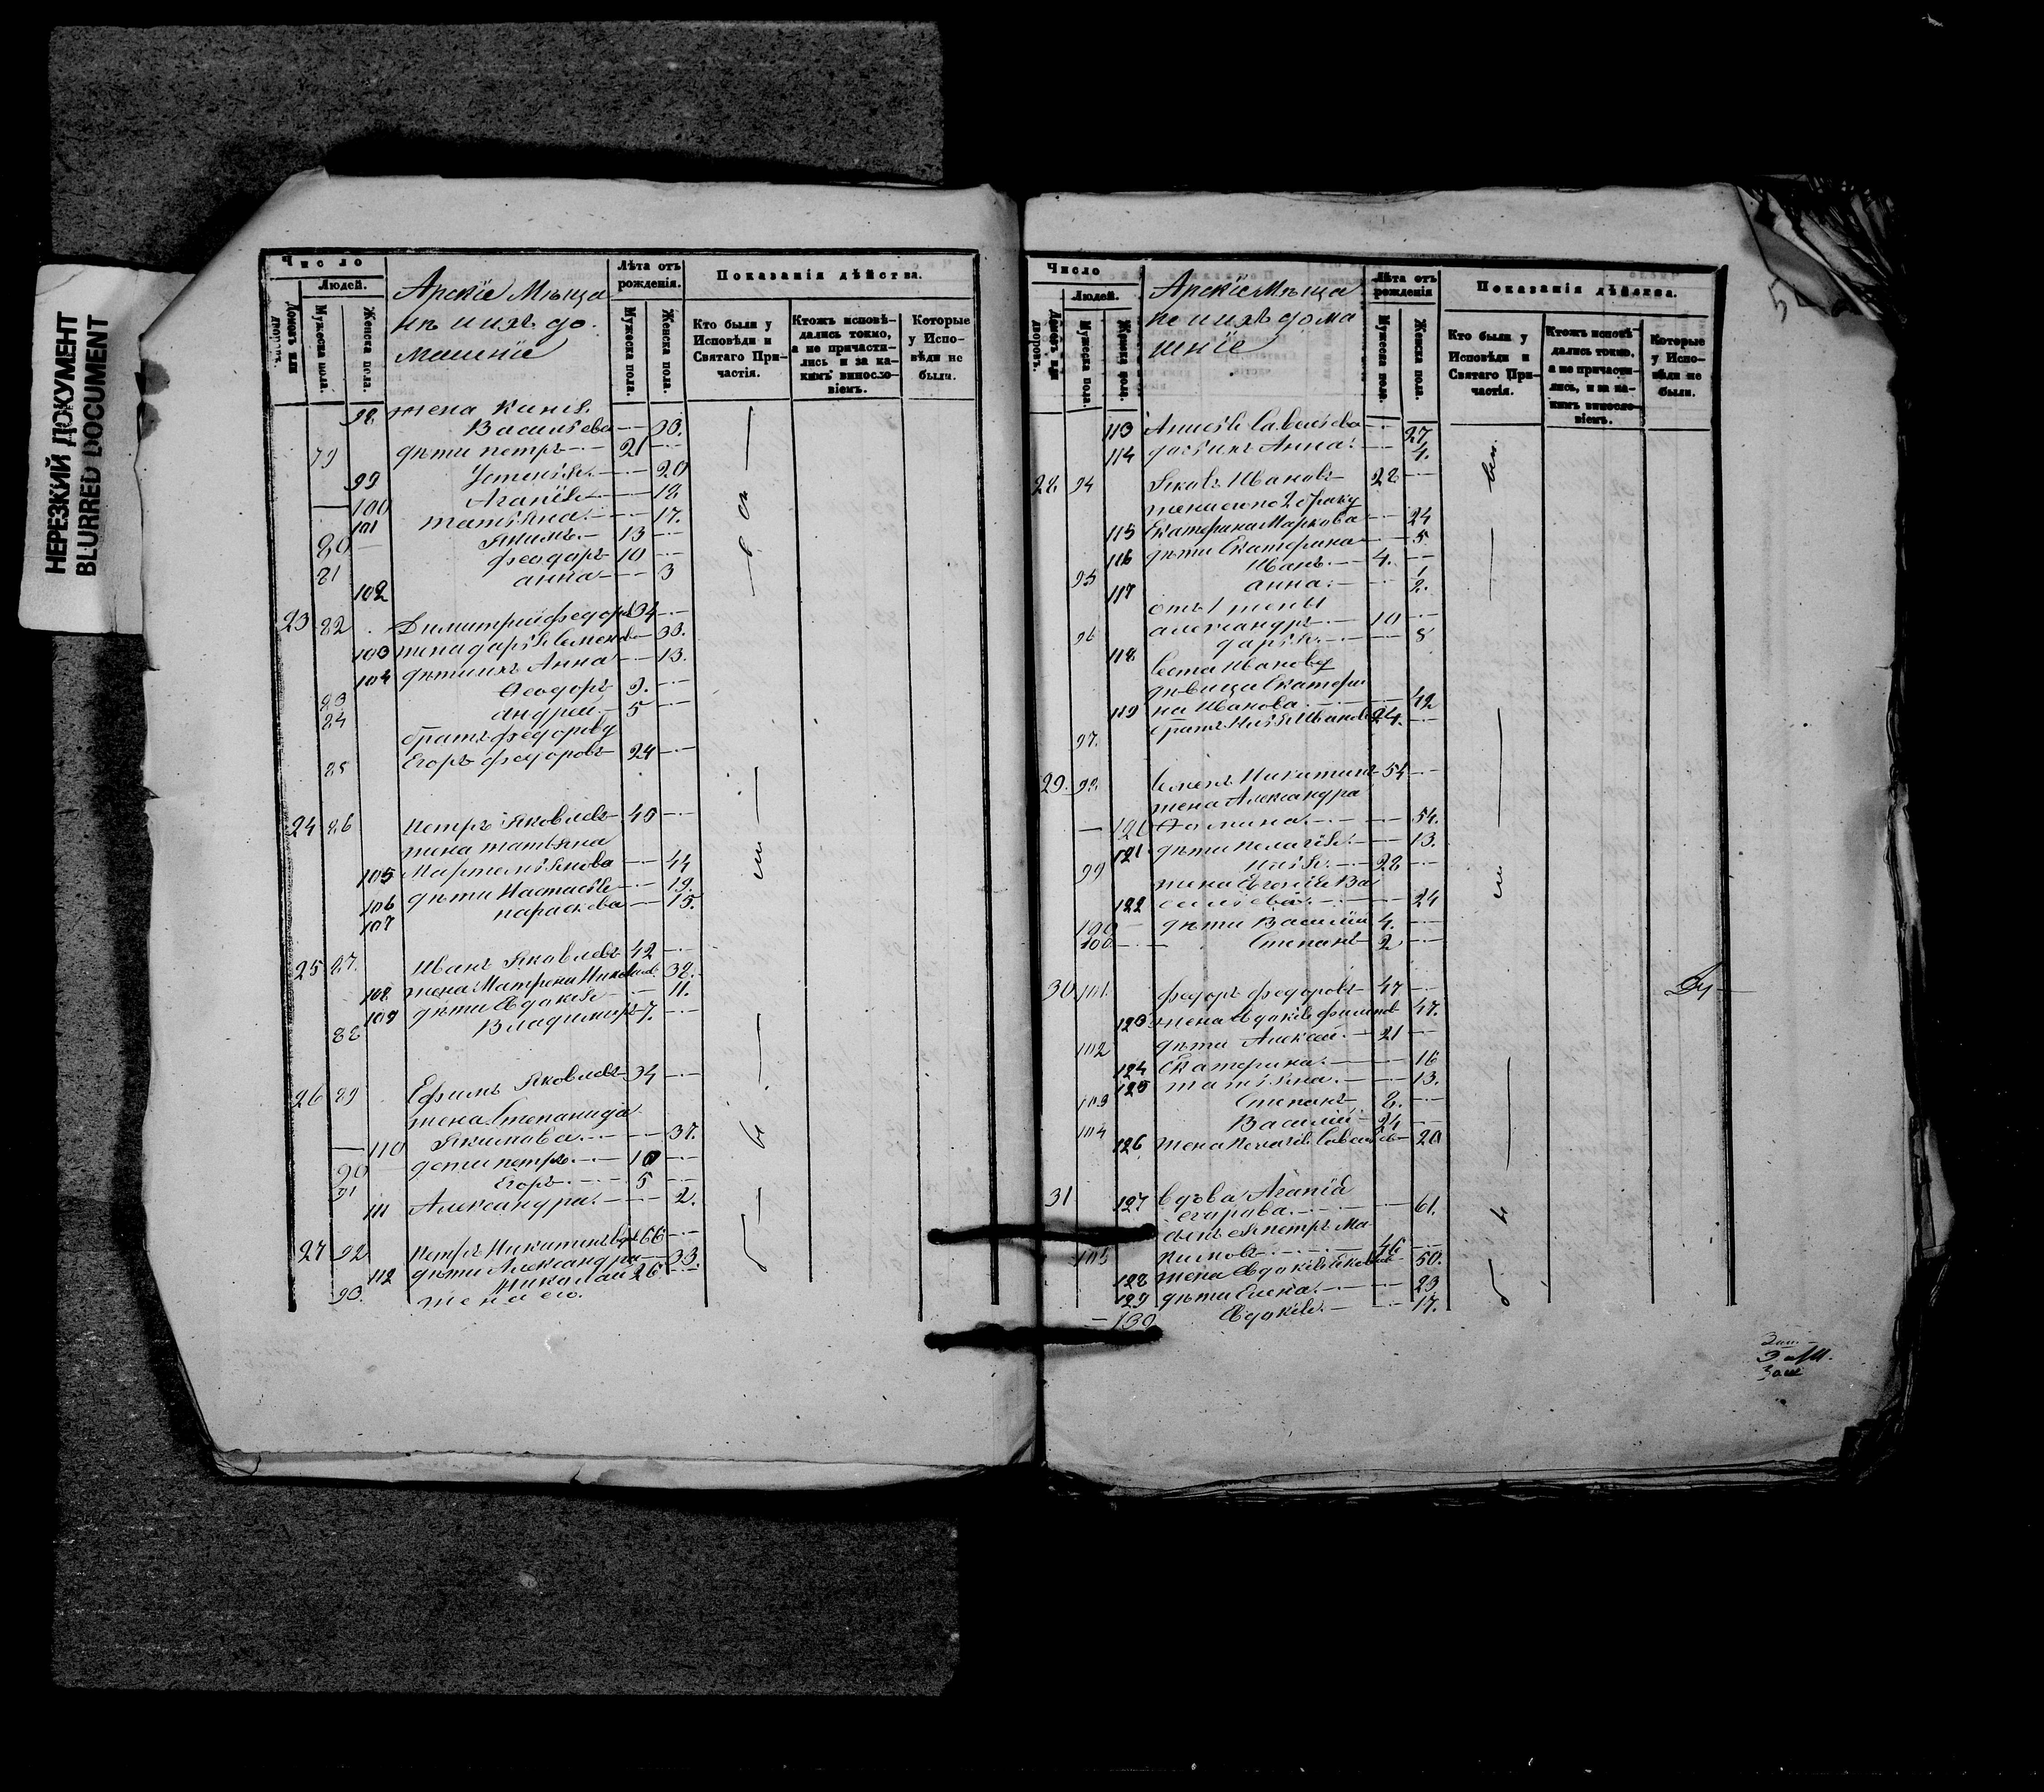 НЕРЕЗКИЙ ДОКУМЕНТ
BLURRED DOCUMENT
Число
Людей.
Домовъ или дворовъ.
Мужеска пола.
Женска пола.
Арскіе Мѣща
не и ихъ до.
машніе
Лѣта отъ рожденія.
Мужеска пола.
Женска пола.
Показанія дѣйства.
Кто были у Исповѣди и Святаго Причастія.
Ктожъ исповѣдались токмо, а не причастились и за какимъ винословіемъ.
Которые у Исповѣди не были.
98 жена
Васильева 
79 дѣти петръ 21
99 Устинья 20
100 Агапія 18
101 татьяна 17.
80 Якимъ 13
81 феодоръ 10
102 анна 3
23 82 Димитрій федоровъ 34
103 жена дарья Семенова 33.
104 дѣти ихъ Анна 13.
83 Феодоръ 9.
84 Андрей 5
братъ федорову
85 Егоръ федоровъ 24
24 86 петръ Яковлевъ 40
жена татьяна
105 Мартемьянова 44
106 дѣти Настасья 19.
107 параскева 15.
25 87. Иванъ Яковлевъ 42
108 жена Матрена 38.
109 дѣти Евдокія 11.
88 Владимиръ 7.
26 89 Ефимъ Яковлевъ 34
жена Степанида
110 Якимова 37.
90 дети петръ 10
91 Егоръ 5
111 Александра 2.
27 92 петръ Никитинъ вдовъ 66
112 дѣти Александра 33.
93. Николай 26
жена его.
Число
Людей.
Домовъ или дворовъ.
Мужеска пола.
Женска пола.
Арскіе Мѣща
не и ихъ дома
шніе
Лѣта отъ рожденія
Мужеска пола.
Женска пола.
Показанія дѣйства.
Кто были у Исповѣди и Святаго Причастія.
Ктожъ исповѣдались токмо, а не причастились, и за какимъ винословіемъ.
Которые у Исповѣди не были.
113 Савельева 27
114 дочь ихъ Анна 4.
28 94 Яковъ Ивановъ 28
жена его по 2 браку
115 Екатерина Маркова 24
116 дѣти Екатерина 5
95 Иванъ 4.
117 анна
отъ 1 жены
96 александръ 10
118 дарья 8
Сестра Иванову
дѣвица Екатери
119 на Иванова 42
97. братъ Илья Ивановъ 24.
29. 98. Семенъ Никитинъ 54
жена Александра
120 Фомина 54.
121 дѣти пелагія 13.
99 Илья 28
жена Евгенія Ва
122 сильева 24
100 дѣти Василій 4.
100 Степанъ 2
30 101. федоръ федоровъ 47
123 жена Евдокія 47.
102 дѣти Алексей 21
124 Екатерина 16
125 татьяна 13.
103 Степанъ 8.
104 Василій 24
126 жена пелагія Савельева 20
31 127 вдова Агапія
егорова 61.
сынъ ея петръ Ма
105 кимовъ 46
128 жена Евдокія Яковлева 50.
129 дѣти Елена 23
130 Евдокія 17.